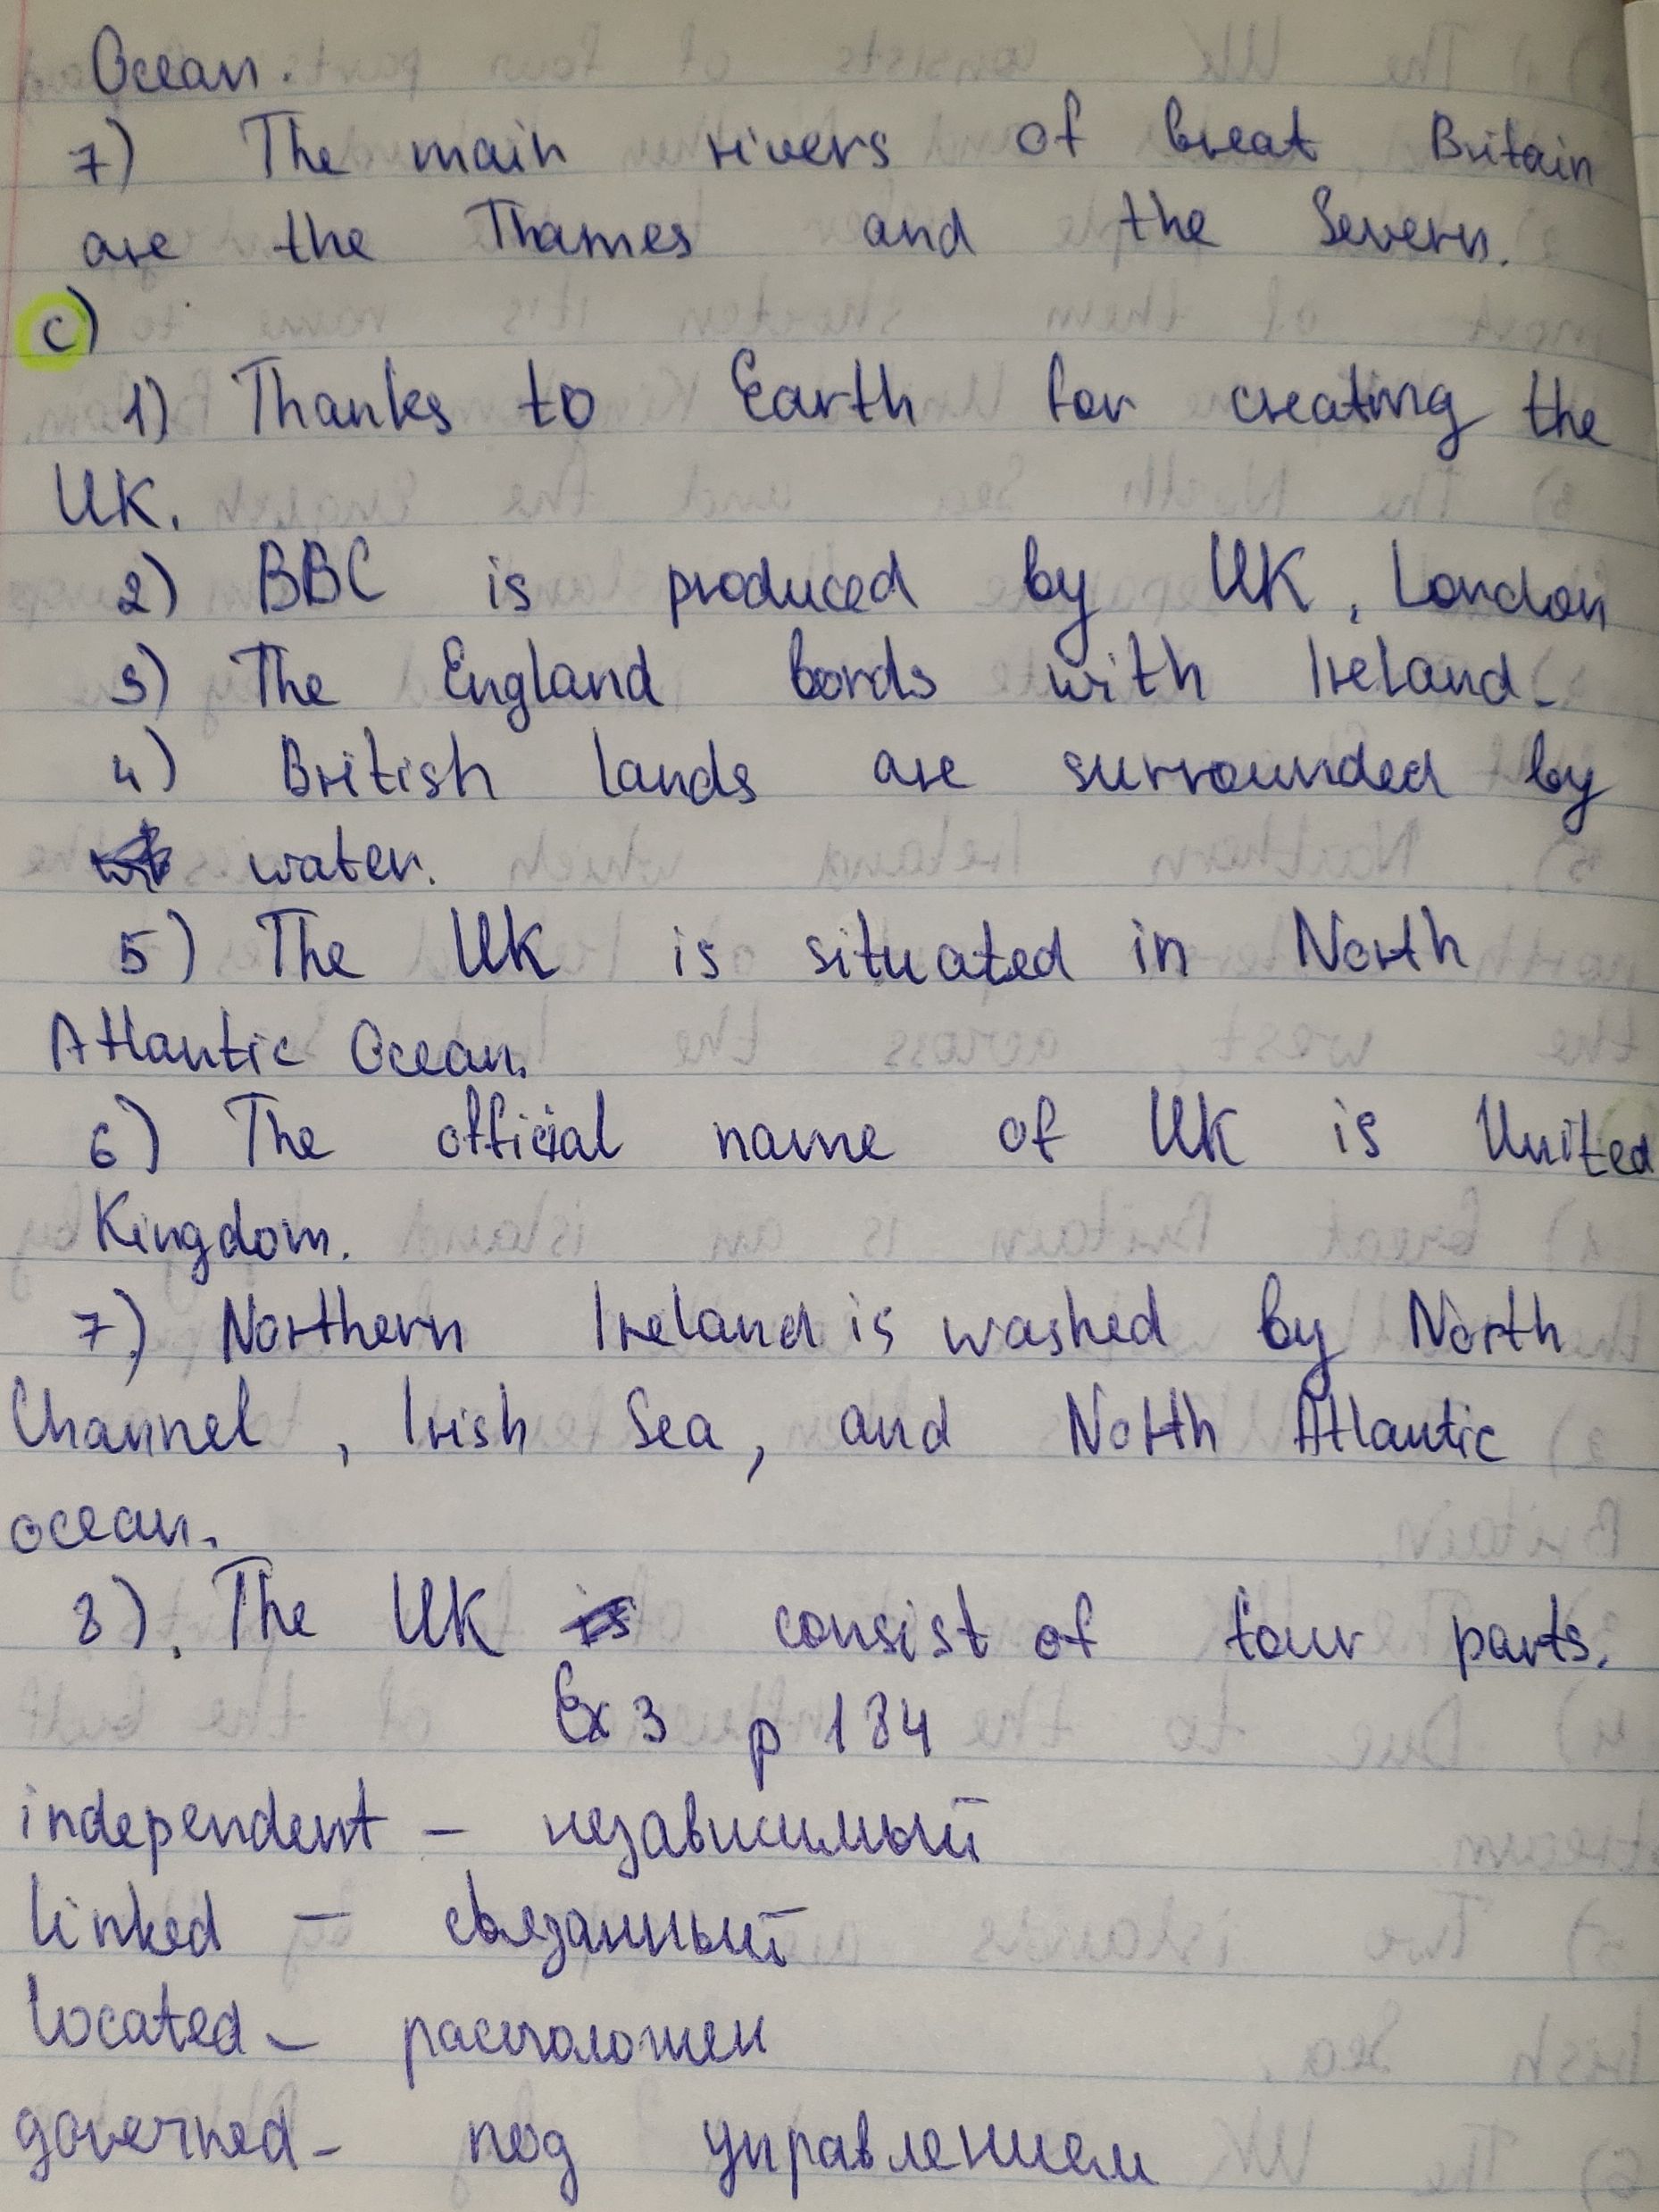 Ocean.
7) The main rivers of Great Britain
are the Thames and the Severn.
c)
1) Thanks to Earth for creating the
UK.
2) BBC is produced by UK, London
3) The England bords with Ireland.
4) British lands are surrounded by
water.
5) The UK is situated in North
Atlantic Ocean.
6) The official name of UK is United
Kingdom.
7) Northern Ireland is washed by North
Channel, Irish Sea, and North Atlantic
ocean.
8). The UK consist of four parts.
Ex 3 p 184
independent – независимый
linked – связанный
located – расположен
governed – под управлением